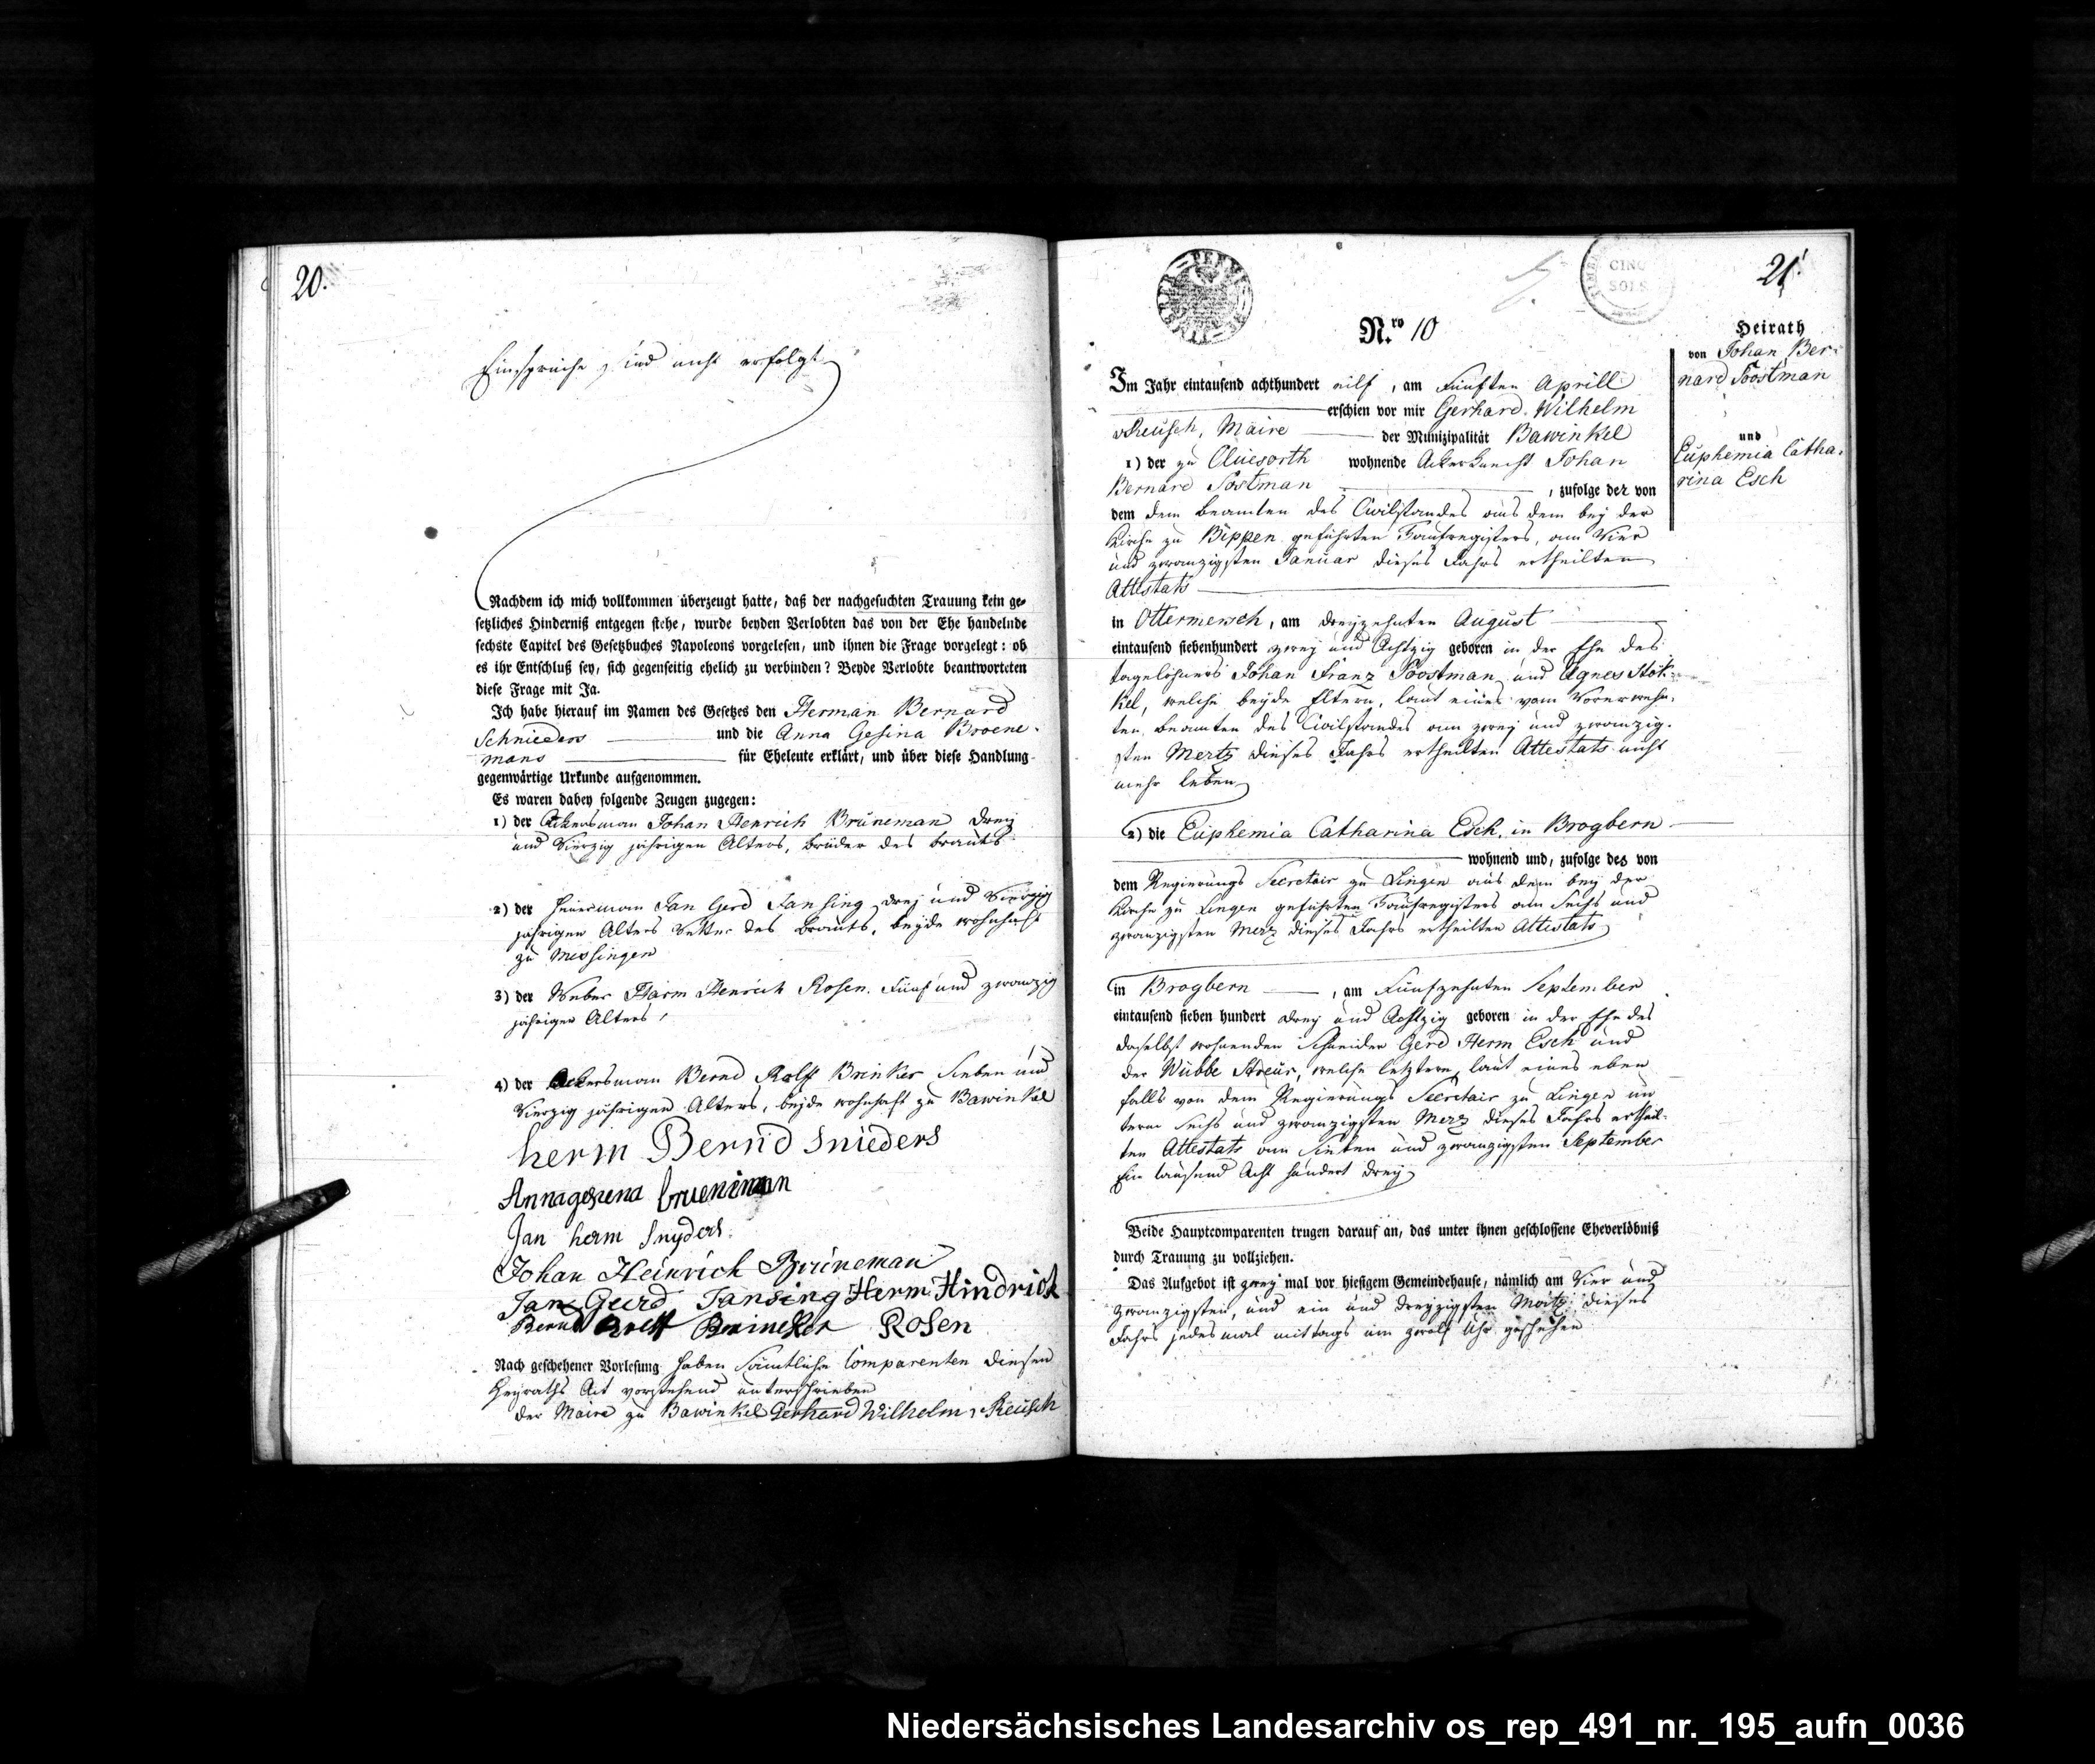 20.
Einsprüche sind nicht erfolgt
Nachdem ich mich vollkommen überzeugt hatte, daß der nachgesuchten Trauung kein ge-
setzliches Hinderniß entgegen stehe, wurde beyden Verlobten das von der Ehe handelnde
sechste Capitel des Gesetzbuches Napoleons vorgelesen, und ihnen die Frage vorgelegt: ob
es ihr Entschluß sey, sich gegenseitig ehelich zu verbinden? Beyde Verlobte beantworteten
diese Frage mit Ja.
Ich habe hierauf im Namen des Gesetzes den Herman Bernard
Schnieders und die Anna Gesina Broene-
mans für Eheleute erklärt, und über diese Handlung
gegenwärtige Urkunde aufgenommen.
Es waren dabey folgende Zeugen zugegen:
1) der Ackersman Johan Henrich Brüneman drey
und Vierzig jährigen Alters, bruder des brauts
2) der Heuersman Jan Gerd Jansing drej und Vierzig
jährigen Alters Vetter des brauts, beyde wohnhaft
zu Messingen
3) der Weber Harm Henrich Rosen. Fünf und zwanzig
jährigen Alters,
4) der Ackersman Bernd Rolff Brinker Sieben und
Vierzig jährigen Alters, beyde wohnhaft zu Bawinkel
herm Bernd Snieders
Annagesena brueniman
Jan herm Snyders.
Johan Heinrich Brüneman
Jan Geerd Jansing Herm Hindrick
Bernd Rolff Brinker Rosen
Nach geschehener Vorlesung haben Sämtliche Comparenten diesen
Heyraths Act vorstehend unterschrieben
der Maire zu Bawinkel Gerhard Wilhelm v Reusch
21.
CINQ
SOLS
Nro 10
Heirath
von Johan Ber-
nard Poostman
und
Euphemia Catha-
rina Esch
Im Jahr eintausend achthundert eilf, am Fünften Aprill
erschien vor mir Gerhard Wilhelm
v Reusch, Maire der Munizipalität Bawinkel
1) der zu Clüesorth wohnende Ackerknecht Johan
Bernard Postman, zufolge der von
dem dem beamten des Civilstandes aus dem bey der
Kirche zu Bippen geführten Taufregisters, am Vier
und zwanzigsten Januar dieses Jahrs ertheilten
Attestats
in Ottermersch, am dreyzehnten August
eintausend siebenhundert zwey und Achtzig geboren in der Ehe des
tagelöhners Johan Franz Poostman und Agnes Stök-
kel, welche beyde Eltern, laut eines vom Vorerwehn-
ten beamten des Civilstandes am zwey und zwanzig-
sten Mertz dieses Jahrs ertheilten Attestats nicht
mehr leben
2) die Euphemia Catharina Esch, in Brogbern
wohnend und, zufolge des von
dem Regierungs Secretair zu Lingen aus dem bey der
Kirche zu Lingen geführten Taufregisters am Sechs und
zwanzigsten Merz dieses Jahrs ertheilten Attestats
in Brogbern, am Fünfzehnten September
eintausend sieben hundert drey und Achtzig geboren in der Ehe des
daselbst wohnenden Schneider Gerd Herm Esch und
der Wübbe Streur, welche letztere, laut eines eben
falls von dem Regierungs Secretair zu Lingen un
term Sechs und zwanzigsten Merz dieses Jahrs ertheil-
ten Attestats am Sieben und zwanzigsten September
Ein tausend Acht hundert drey
Beide Hauptcomparenten trugen darauf an, das unter ihnen geschlossene Eheverlöbniß
durch Trauung zu vollziehen.
Das Aufgebot ist zwey mal vor hiesigem Gemeindehause, nämlich am Vier und
zwanzigsten, und ein und dreyzigsten Märtz dieses
Jahrs jedesmal mittags um zwölf Uhr geschehen
Niedersächsisches Landesarchiv os_rep_491_nr._195_aufn_0036